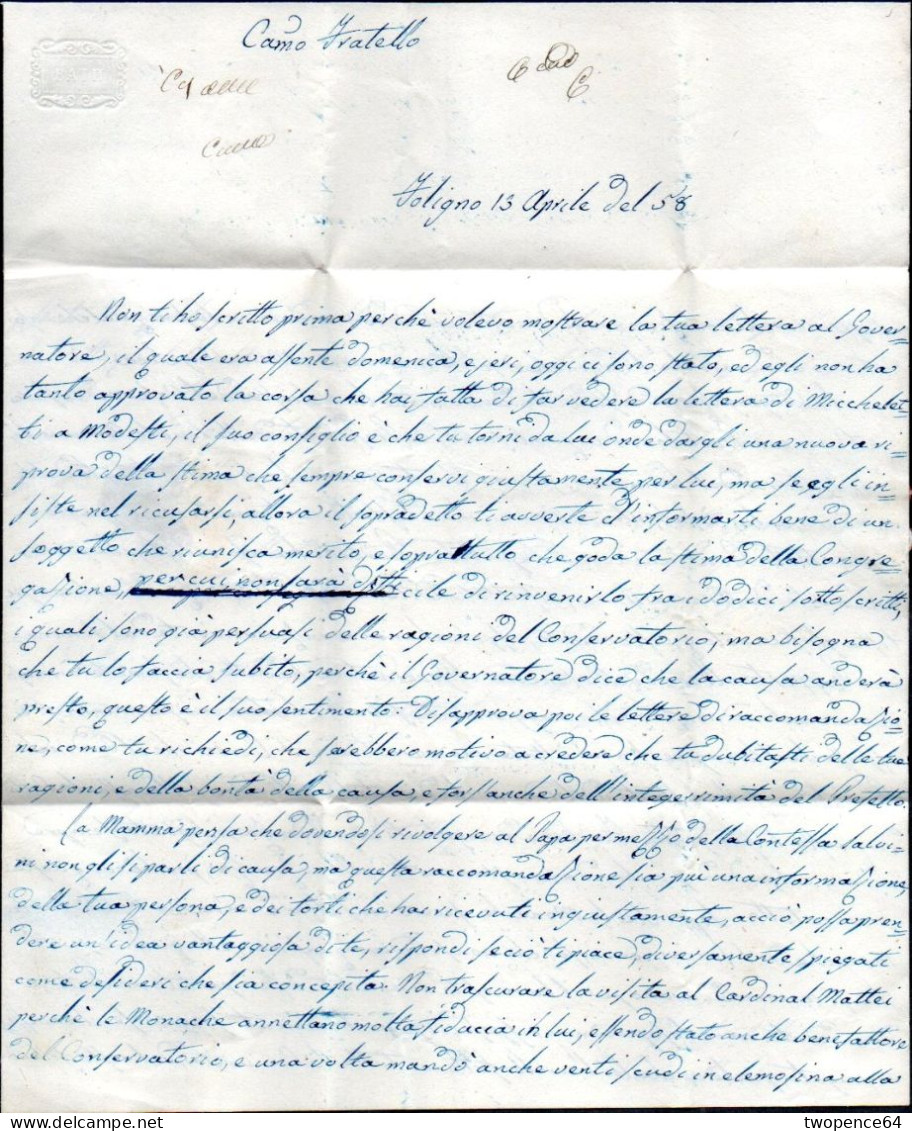 Carmo Fratello
Foligno 13 Aprile del 58
Non ti ho scritto prima perchè volevo mostrare la tua lettera al Gover=
natore, il quale era assente domenica, e jeri, oggi ci sono stato, ed egli non ha
tanto approvato la cosa che hai fatta di far vedere la lettera di Micchelet=
ti a Modesti, il suo consiglio è che tu torni da lui onde dargli una nuova ri=
prova della stima che sempre conservi giustamente per lui, ma se egli in=
siste nel ricusarsi, allora il sopradetto ti avverte d'informarti bene di un
soggetto che riunisca merito, e soprattutto che goda la stima della Congre=
gassione, per cui non sarà difficile di rinvenirlo fra i dodici sottoscritti,
i quali sono già persuasi delle ragioni del Conservatorio, ma bisogna
che tu lo faccia subito, perchè il Governatore dice che la causa anderà
presto, questo è il suo sentimento. Disapprova poi le lettere di raccomandasio=
ne, come tu richiedi, che sarebbero motivo a credere che tu dubitassi delle tue
ragioni, e della bontà della causa, e fors'anche dell'integerrimità del Prefetto.
La Mamma pensa che dovendosi rivolgere al Papa per mezzo della Contessa Salvi=
ni non gli si parli di causa, ma questa raccomandassione sia più una informassione,
della tua persona, e dei torti che hai ricevuti ingiustamente, acciò possa pren=
dere un'idea vantaggiosa di te, rispondi se ciò ti piace, diversamente spiegati
come desideri che sia concepita. Non trascurare la visita al Cardinal Mattei
perchè le Monache annettano molta fiducia in lui, essendo stato anche benefattore
del Conservatorio, e una volta mandò anche venti scudi in elemosina alla
twopence64